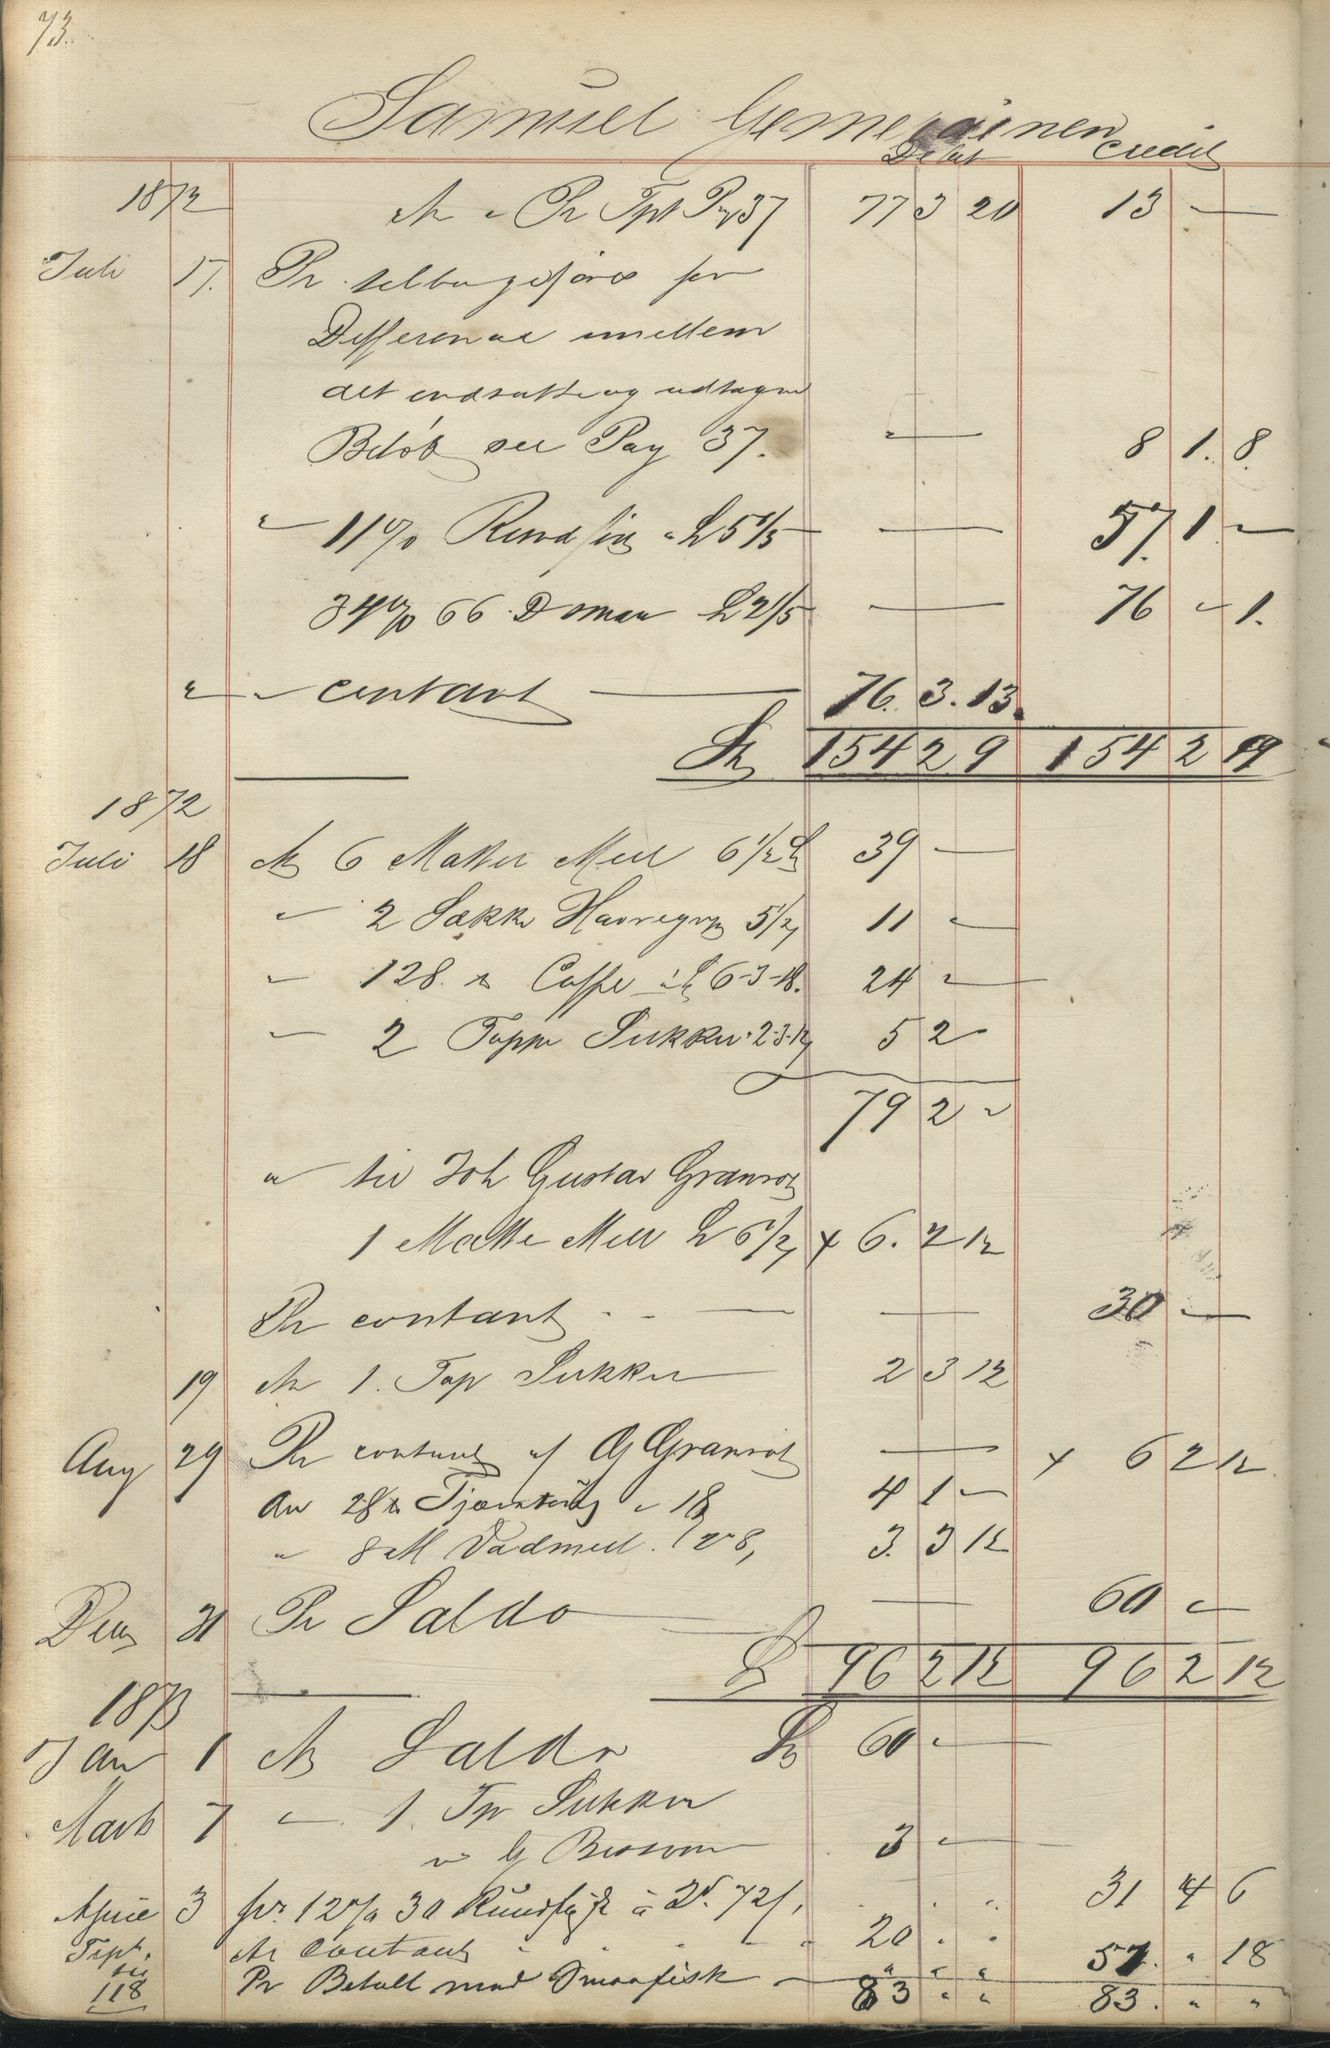 73.
Samuel
Debet Credit
1872 An " Pr Tpt Pag 37 77 3 20 13 —
Juli 17. Pr for
Differense imellem
det indsatte og udtagne
Beløb see Pag 37. — 8 1. 8.
" 11 % Rundfisk a 5 1/5 — 57. 1 —
34 % 66 2/5 — 76 " 1.
" " contant — 76. 3. 13.
154 2 9 154 2 9
1872
Juli 18 An 6 Matter Meel 6 1/2 39 —
" 2 Sække Havregryn 5 1/2 11 "
" 128. Caffe 6-3-18. 24 "
" 2 Toppe Sukker 2-3-12 5 2 "
79 2 "
" til Joh Gustav Granrot
1 Matte Meel 6 1/2 x 6. 2 12
Pr contant — 30 —
19 An 1. Top Sukker 2 3 12
Aug 29 Pr contant af G Granrot — x 6 2 12
An 28 a 18 4 1 —
" 8 Vadmel. 3. 3 12
Dec 31 Pr Saldo — 60 "
96 2 12 96 2 12
1873
Jan 1 An Saldo 60 "
Marts 7 " 1. Tp Sukker
v 3 "
April 3 pr. 12 % 30 Rundfisk á 72 31 4 6
Trpt. An Contant " " " 20 " "
til Pr Betalt med Smaafisk — " " " 51. " 18
118 83 " " 83. " "